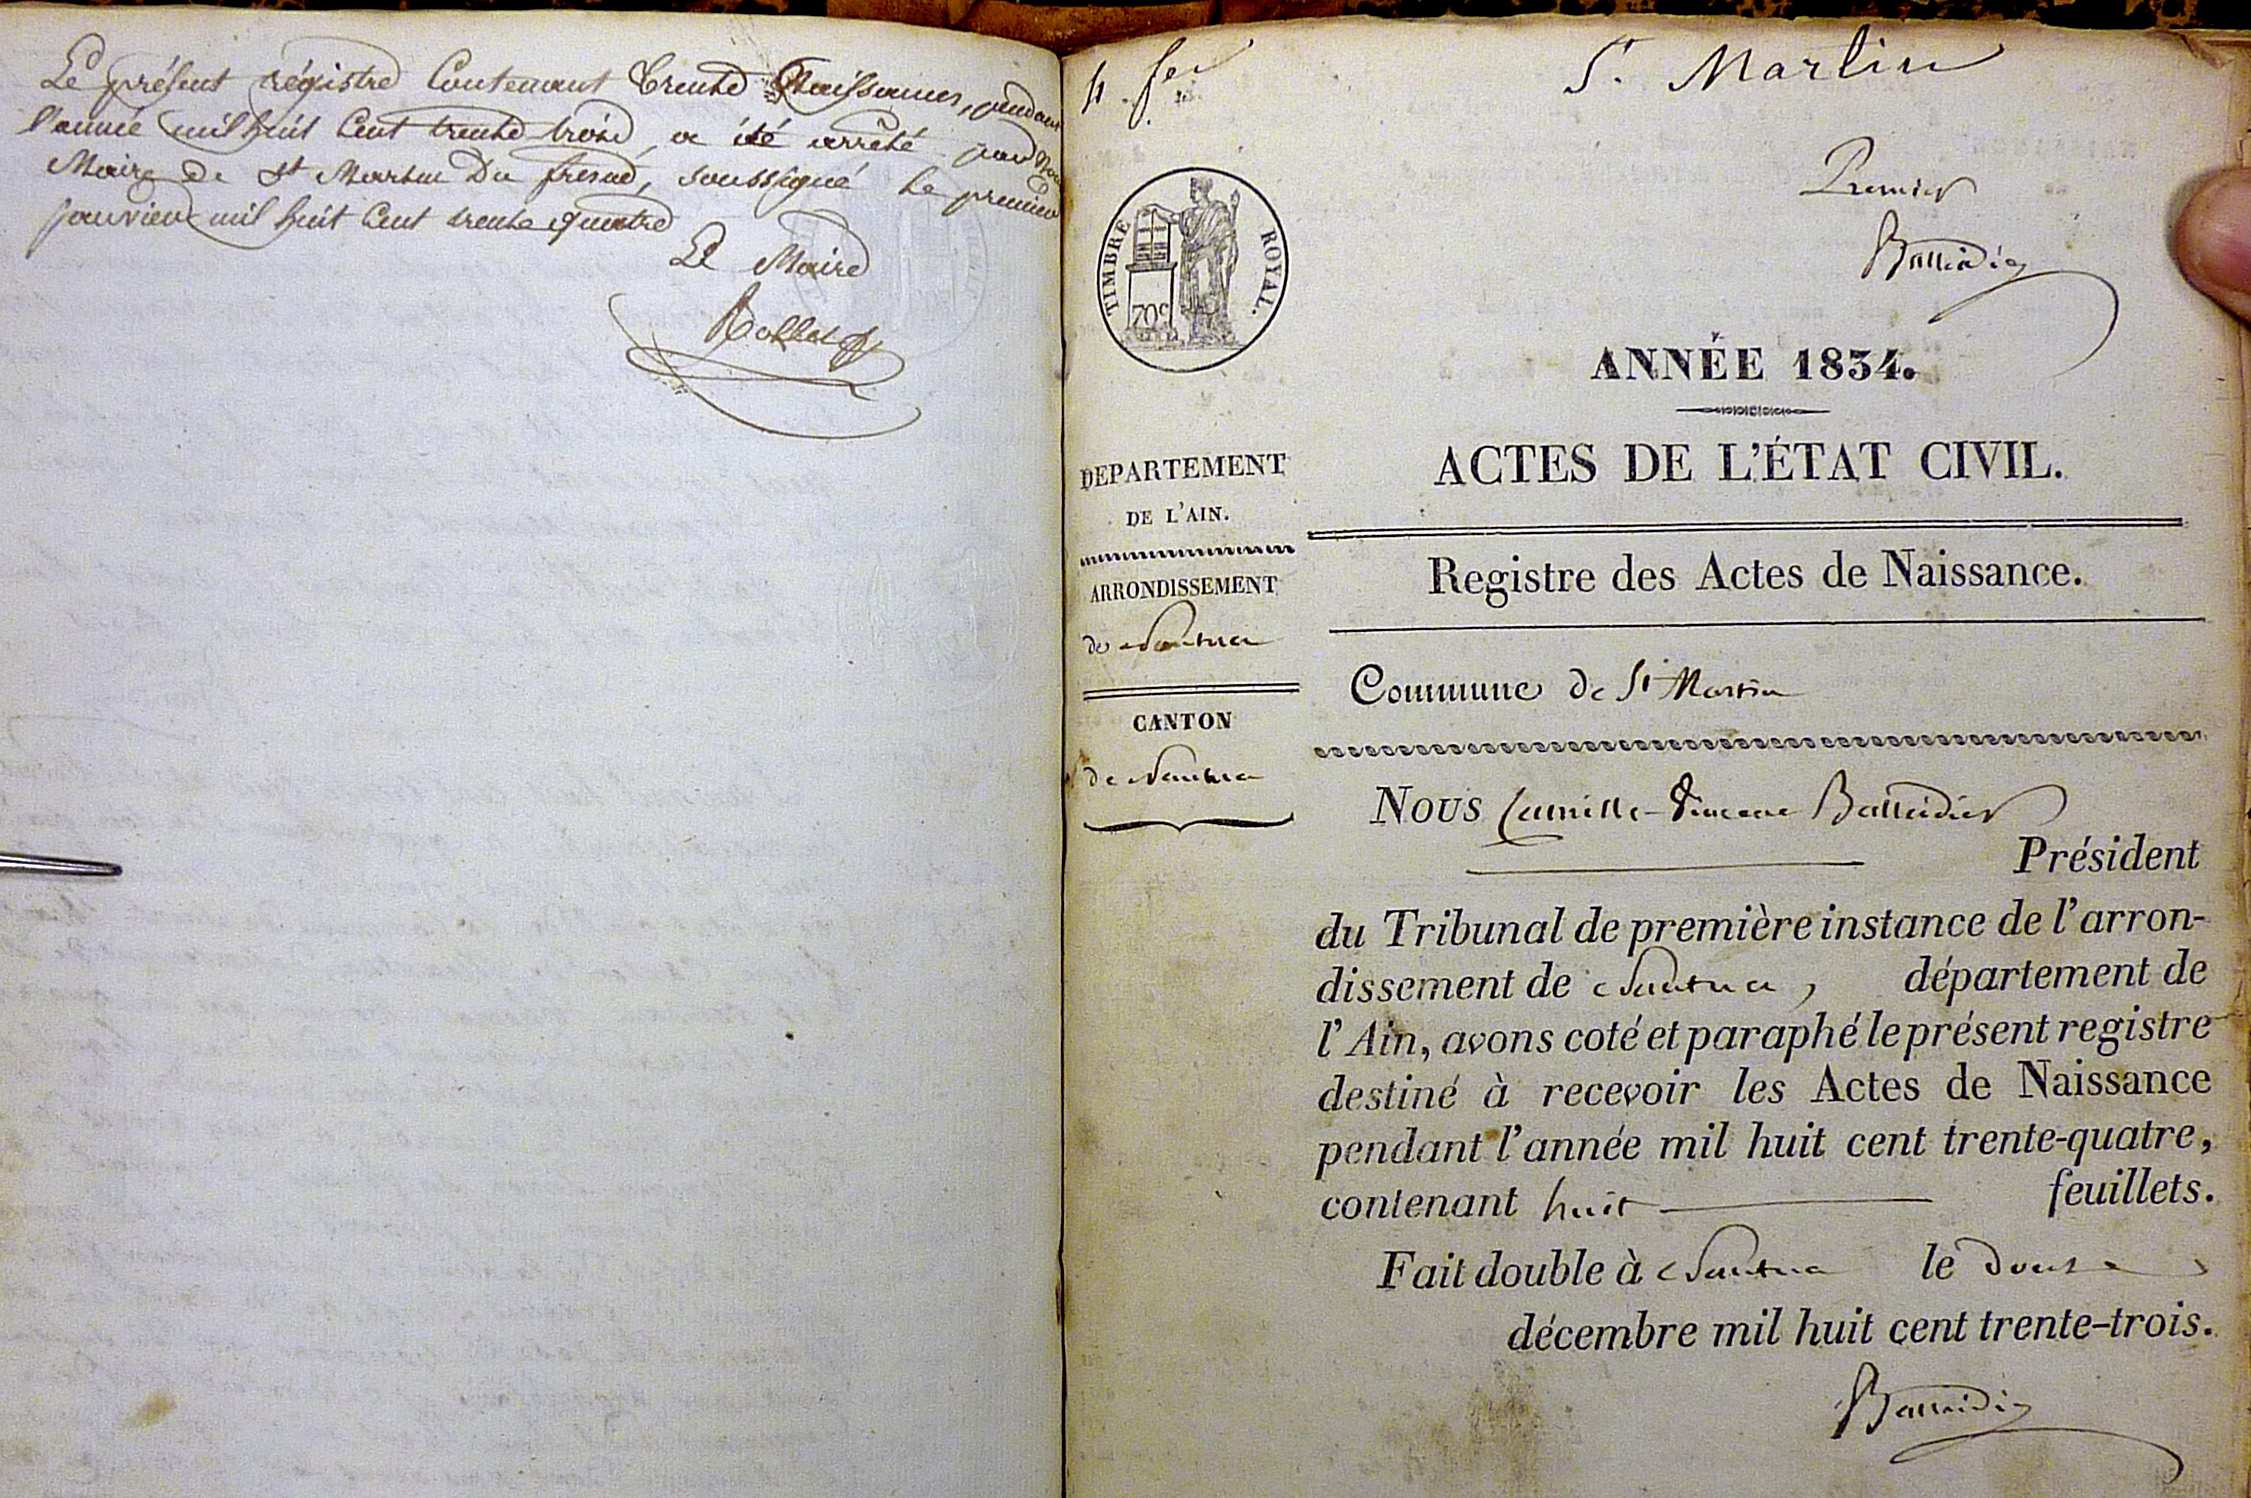 Le présent régistre Contenant trente Naissances, pendant
l'année mil huit Cent trente trois, a été arrêté par Nous
Maire de St Martin Du fresne, soussigné Le premier
janvier mil huit Cent trente quatre
Le Maire
4. fer
St. Martin
Premier
Ballaidier
TIMBRE ROYAL.
70c
ANNÉE 1834.
ACTES DE L'ÉTAT CIVIL.
DEPARTEMENT
DE L'AIN.
ARRONDISSEMENT
de Nantua
CANTON
de Nantua
Registre des Actes de Naissance.
Commune de St Martin
Nous Camille-Vincent Ballaidier
Président
du Tribunal de première instance de l'arron-
dissement de Nantua, département de
l'Ain, avons coté et paraphé le présent registre
destiné à recevoir les Actes de Naissance
pendant l'année mil huit cent trente-quatre,
contenant huit feuillets.
Fait double à Nantua le douze
décembre mil huit cent trente-trois.
Ballaidier